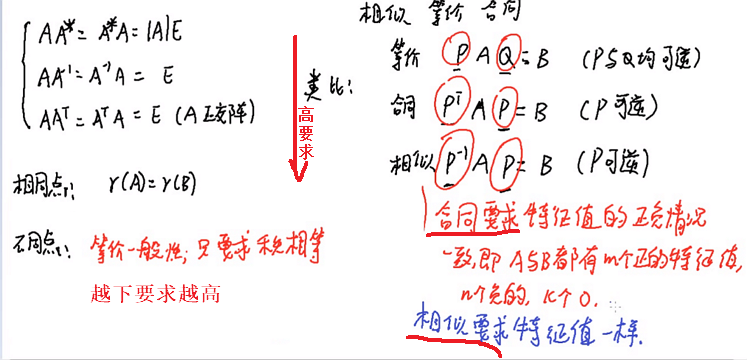 AA* = A*A = |A|E
AA⁻¹ = A⁻¹A = E
AAᵀ = AᵀA = E (A正交阵)
相同点: r(A) = r(B)
不同点: 等价一般性; 只要求秩相等
越下要求越高
类比:
高要求
相似 等价 合同
等价 PAQ = B (P与Q均可逆)
合同 PᵀAP = B (P可逆)
相似 P⁻¹AP = B (P可逆)
合同要求特征值的正负情况
一致,即A与B都有m个正的特征值,
n个负的, K个0.
相似要求特征值一样.